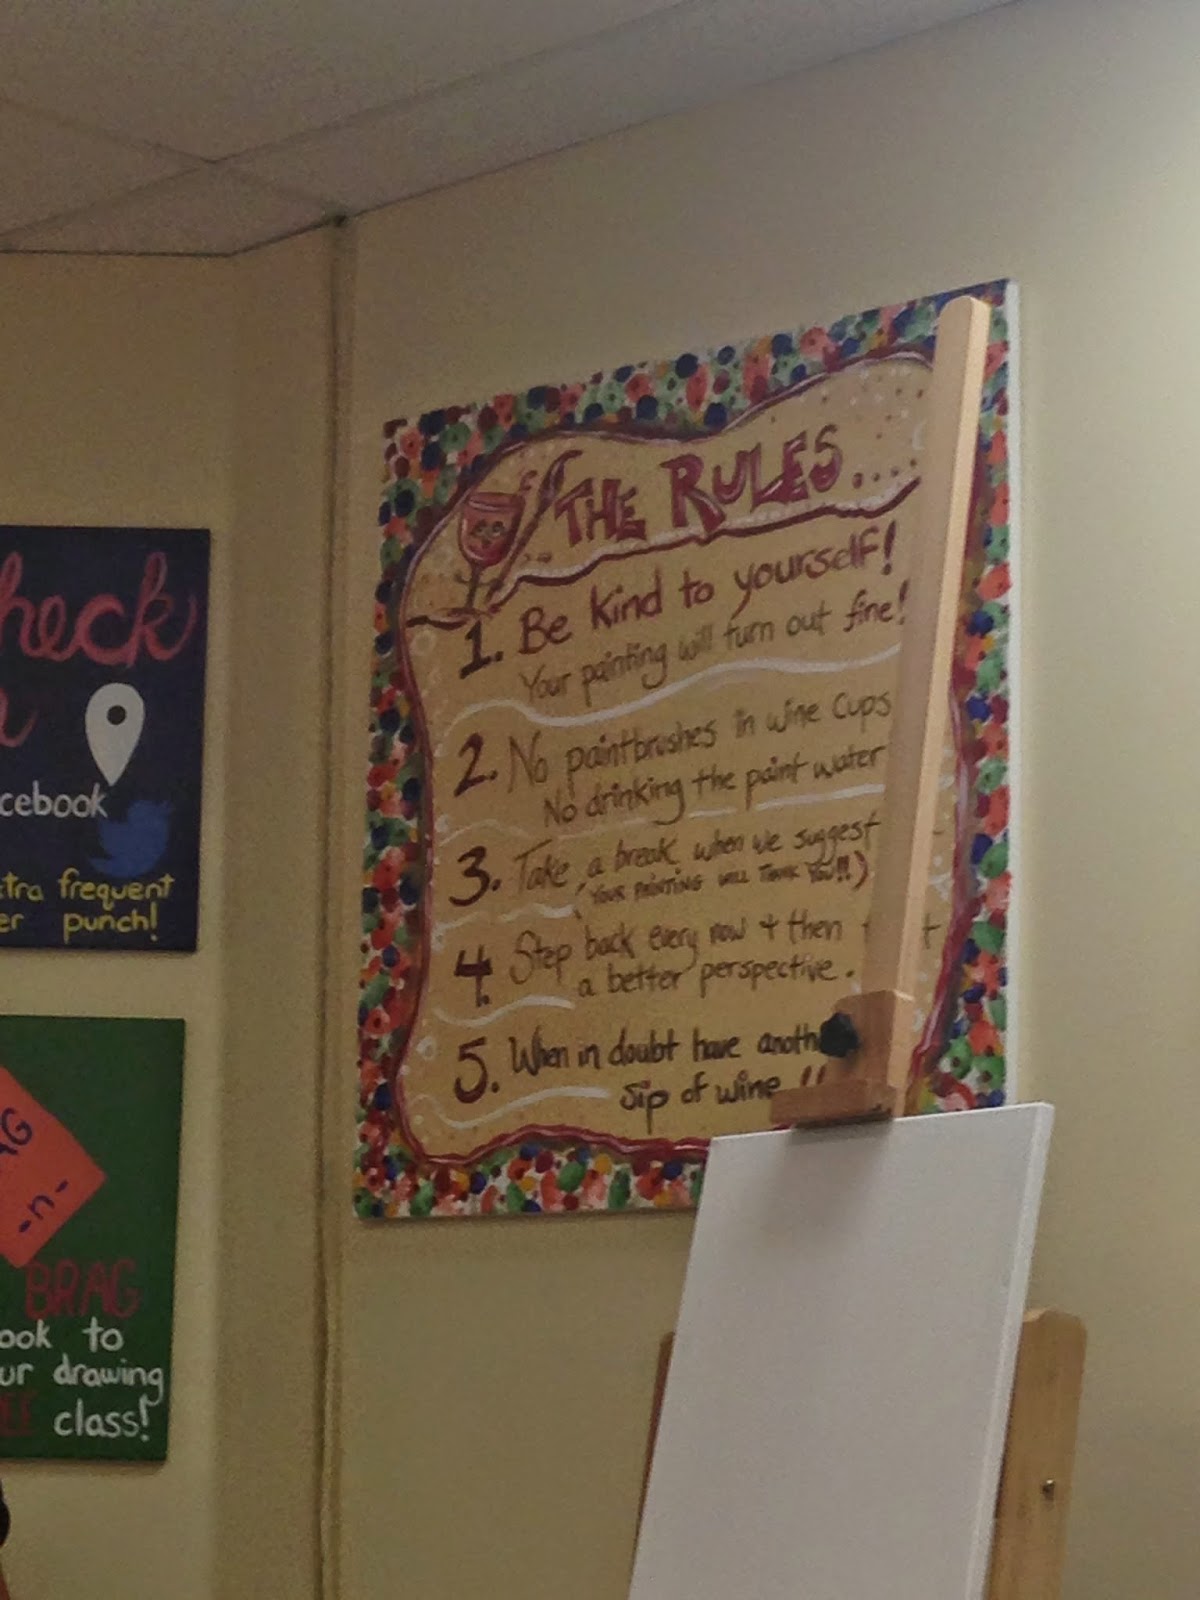 THE RULES....
1. Be kind to yourself!
Your painting will turn out fine!
2. No paintbrushes in wine cups
No drinking the paint water
3. Take a break when we suggest
(YOUR PAINTING WILL THANK YOU!!)
4. Step back every now + then
a better perspective.
5. When in doubt have anoth
sip of wine!!
heck
cebook
tra frequent
er punch!
AG
-n-
BRAG
ook to
ur drawing
class!